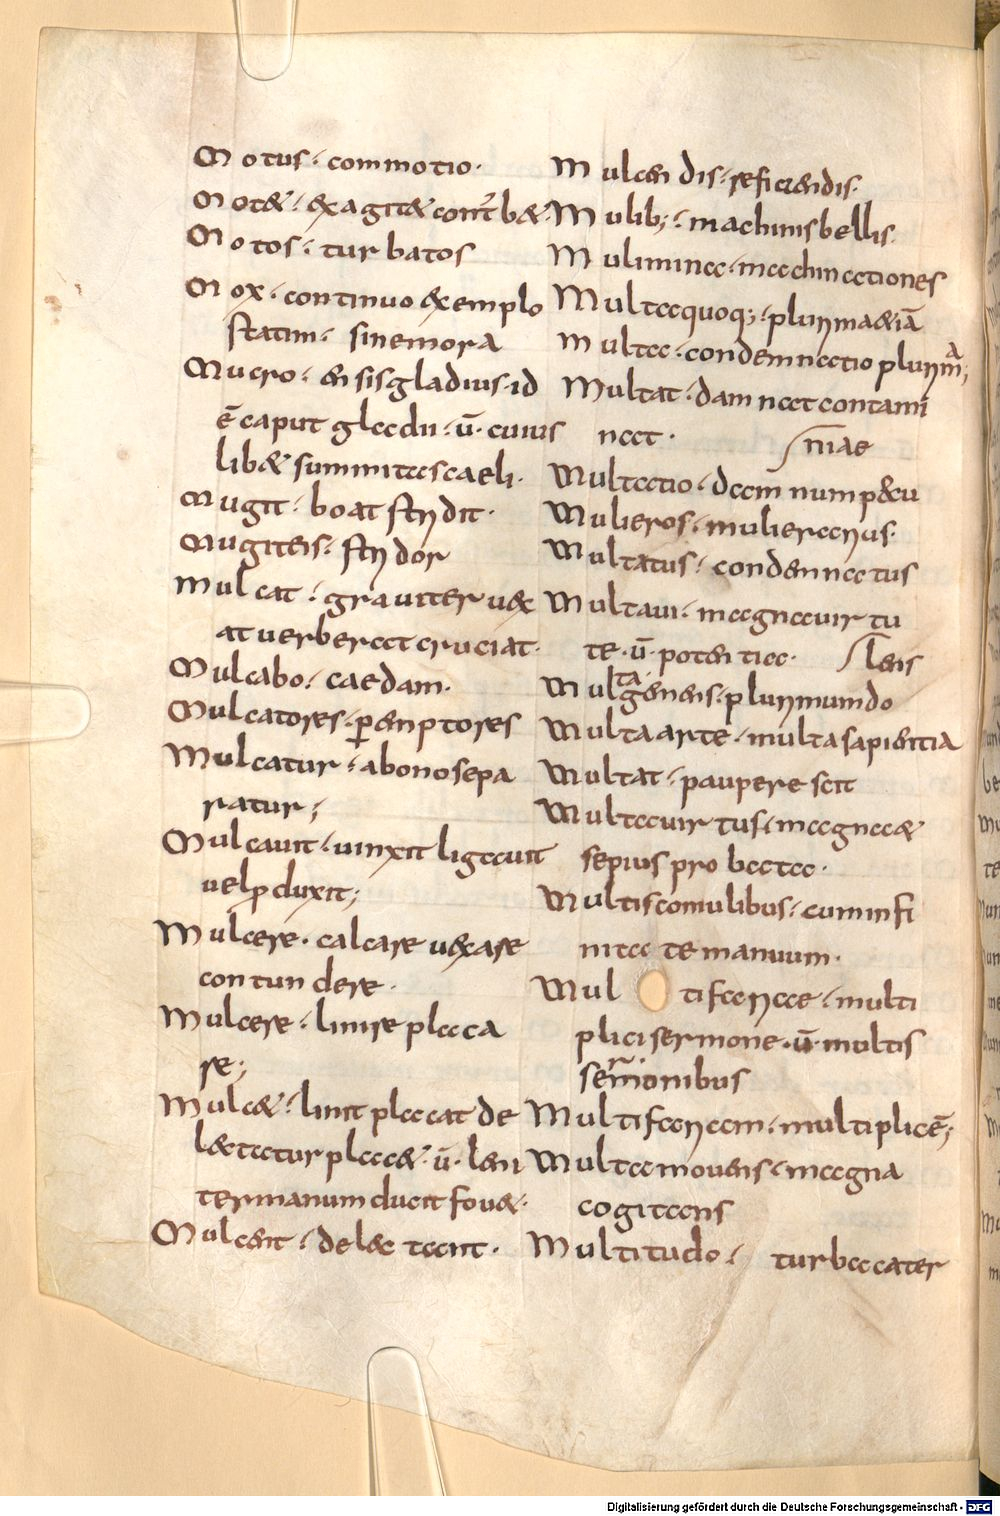 Motus · commotio ·
Mot& · exagit& contb&
Motos · turbatos
Mox · continuo exemplo
statim · sinemora
Mucro · ensis gladius · id
ē caput gladii · ū · cuius
lib& summitas caeli ·
Mugit · boat stridit ·
Mugitens · stridor
Mulcat · grauiter uex
at uerberat cruciat ·
Mulcabo · caedam ·
Mulcatores · p emptores
Mulcatur · abono sepa
ratur ;
Mulcauit · uinxit ligauit
uel p duxit ;
Mulcere · calcare uexare
contundere ·
Mulcere · linire placa
re ;
Mulc& · linit placat de
lectatur plac& · ū · leni
ter manum ducit fou& ·
Mulcent · delectant ·
Mulcendis · reficiendis ·
Mulib; · machinis bellis
Mulimina · machinationes
Multaquoq; · plurima&iā
Multa · condemnatio plurima;
Multat · damnat contami
nat · niae
Multatio · damnum p&cu
Mulieros · mulierarius ·
Multatus · condemnatus
Multaui · magnauirtu
te · ū · potentia · lens
Multagenens · plurimundo
Multaarte · multasapientia
Multat · paupere scit
Multauirtus · magna&
sepius probata ·
Multiscomulibus · cuminfi
nita te manuum ·
Multifariae · multi
plici sermone · ū · multis
sermonibus
Multifariam · multiplicē;
Multamouens · magna
cogitans
Multitudo · turba cater
Digitalisierung gefördert durch die Deutsche Forschungsgemeinschaft - DFG